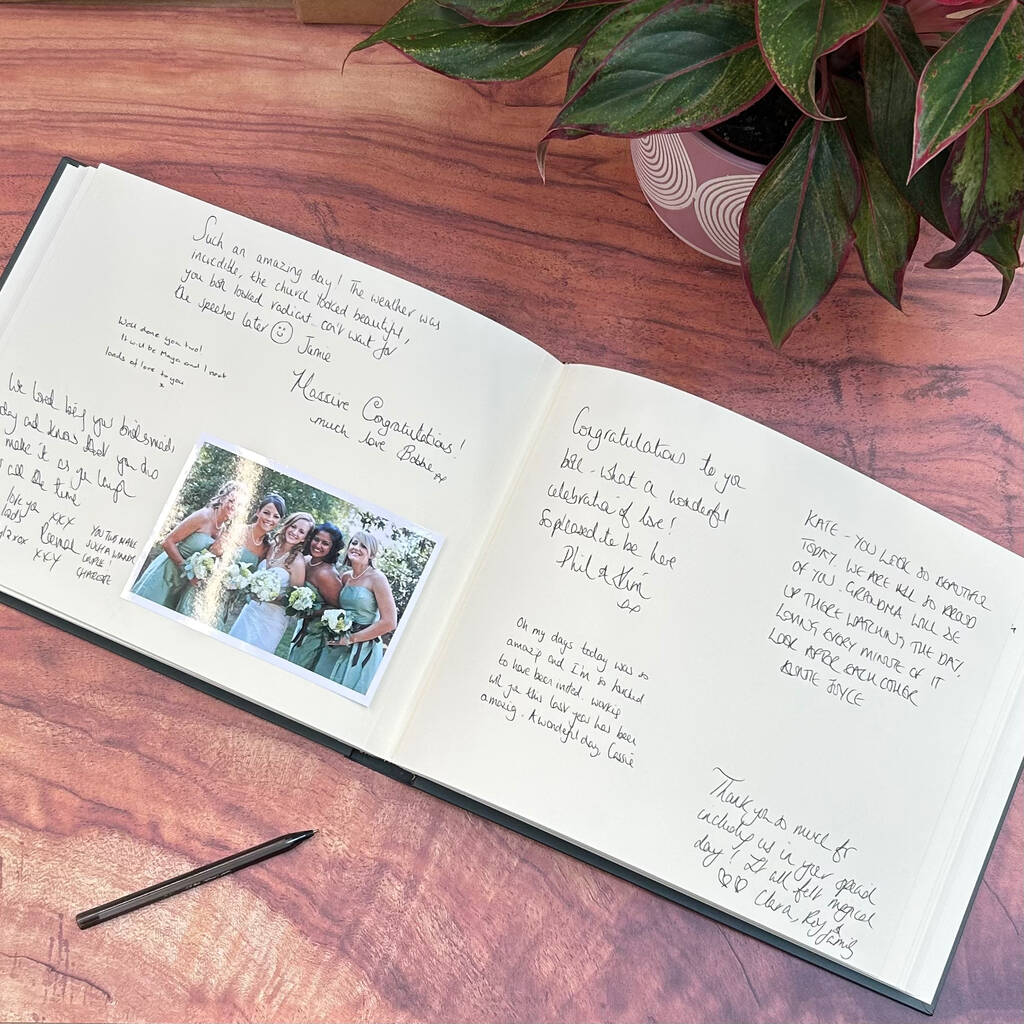 Such an amazing day! The weather was
incredible, the church looked beautiful,
you both looked radiant - can't wait for
the speeches later
Jamie
Well done you two!
It will be Maya and I next
loads of love to you
x
Massive Congratulations!
much love Bobbie xx
We loved being your bridesmaids
day and know that you two
make it as you laugh
all the time
love you xxx
xxx
YOU TWO MAKE
SUCH A
COUPLE!
CHARLOTTE
Congratulations to you
both - what a wonderful
celebration of love!
So pleased to be here
Phil & Kim
xx
Oh my days today was so
amazing and I'm so honoured
to have been invited. working
with you this last year has been
amazing. A wonderful day, Cassie
KATE - YOU LOOK SO BEAUTIFUL
TODAY. WE ARE ALL SO PROUD
OF YOU. GRANDMA WILL BE
UP THERE WATCHING THE DAY,
LOVING EVERY MINUTE OF IT
LOOK AFTER EACH OTHER
AUNTIE JOYCE
Thank you so much for
including us in your special
day! It all felt magical
Clara, Roy &
family